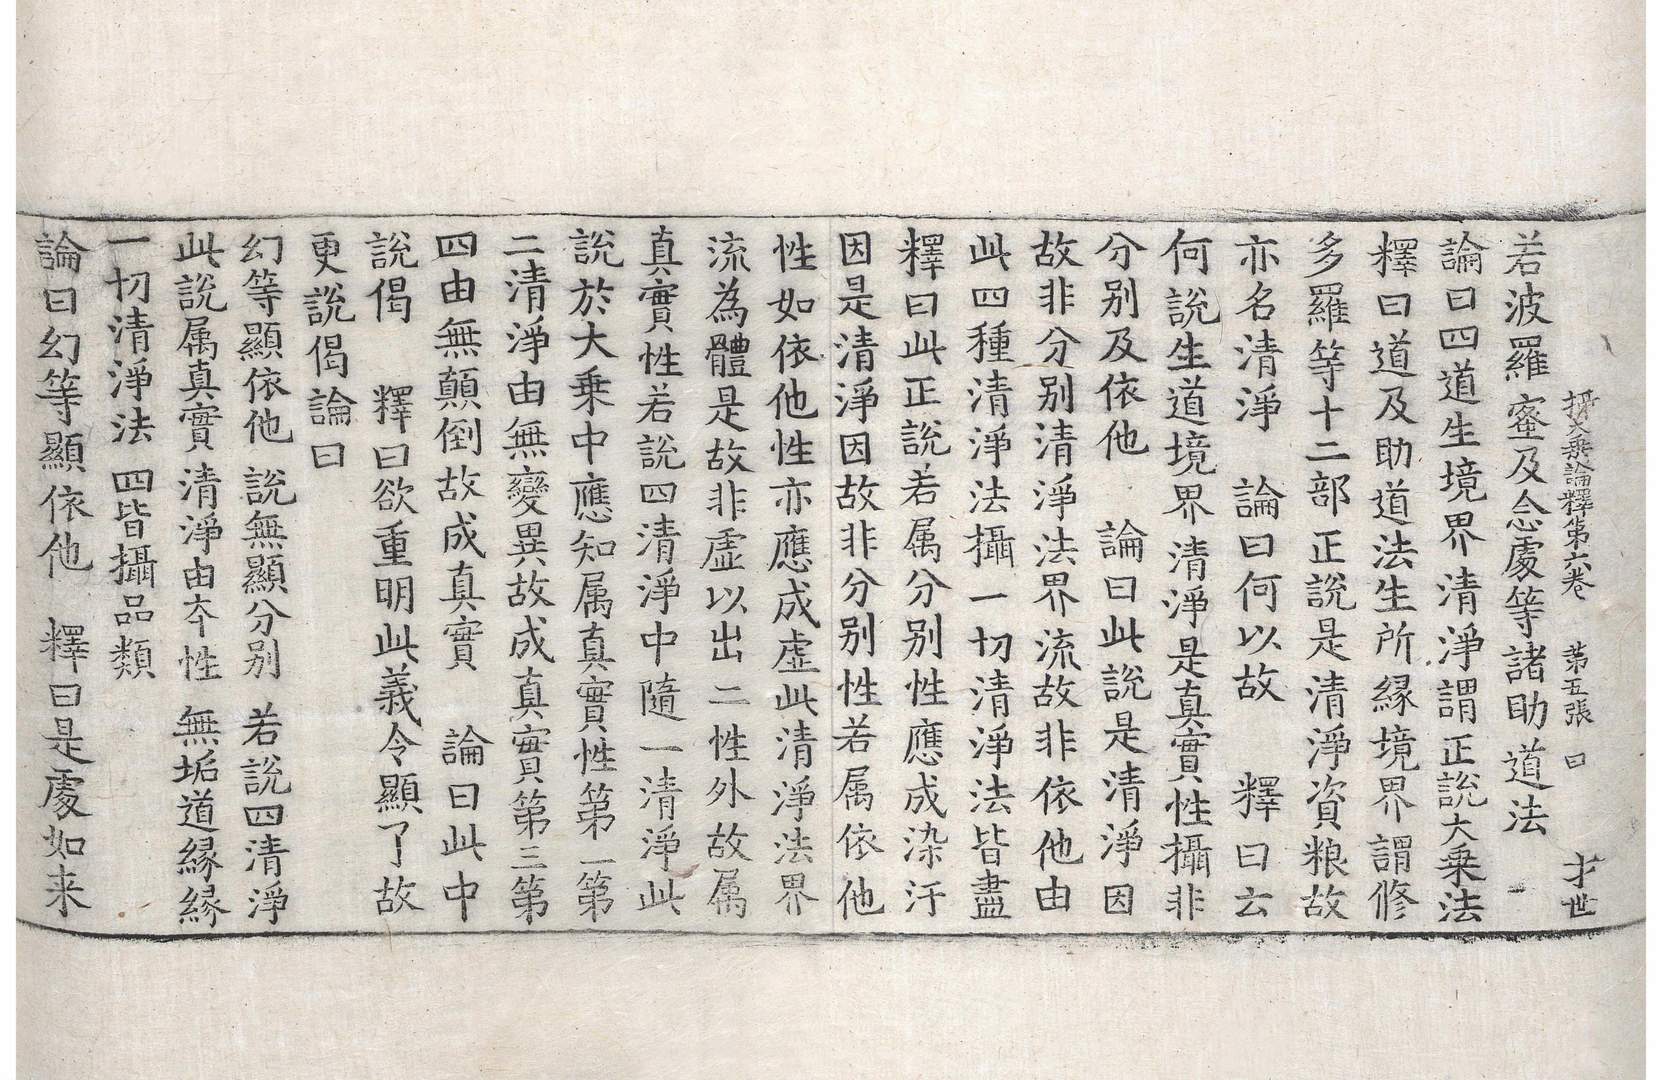 攝大乘論釋第六卷 第五張 曰 才世
若波羅蜜及念處等諸助道法
論曰四道生境界清淨謂正說大乘法
釋曰道及助道法生所縁境界謂修
多羅等十二部正說是清淨資粮故
亦名清淨 論曰何以故 釋曰云
何說生道境界清淨是真實性攝非
分别及依他 論曰此說是清淨因
故非分别清淨法界流故非依他由
此四種清淨法攝一切清淨法皆盡
釋曰此正説若属分别性應成染汙
因是清淨因故非分别性若属依他
性如依他性亦應成虛此清淨法界
流為體是故非虛以出二性外故属
真實性若說四清淨中隨一清淨此
說於大乘中應知属真實性第一第
二清淨由無變異故成真實第三第
四由無顛倒故成真實 論曰此中
說偈 釋曰欲重明此義令顯了故
更說偈論曰
幻等顯依他 說無顯分别 若說四清淨
此說属真實 清淨由本性 無垢道縁縁
一切清淨法 四皆攝品類
論曰幻等顯依他 釋曰是處如来